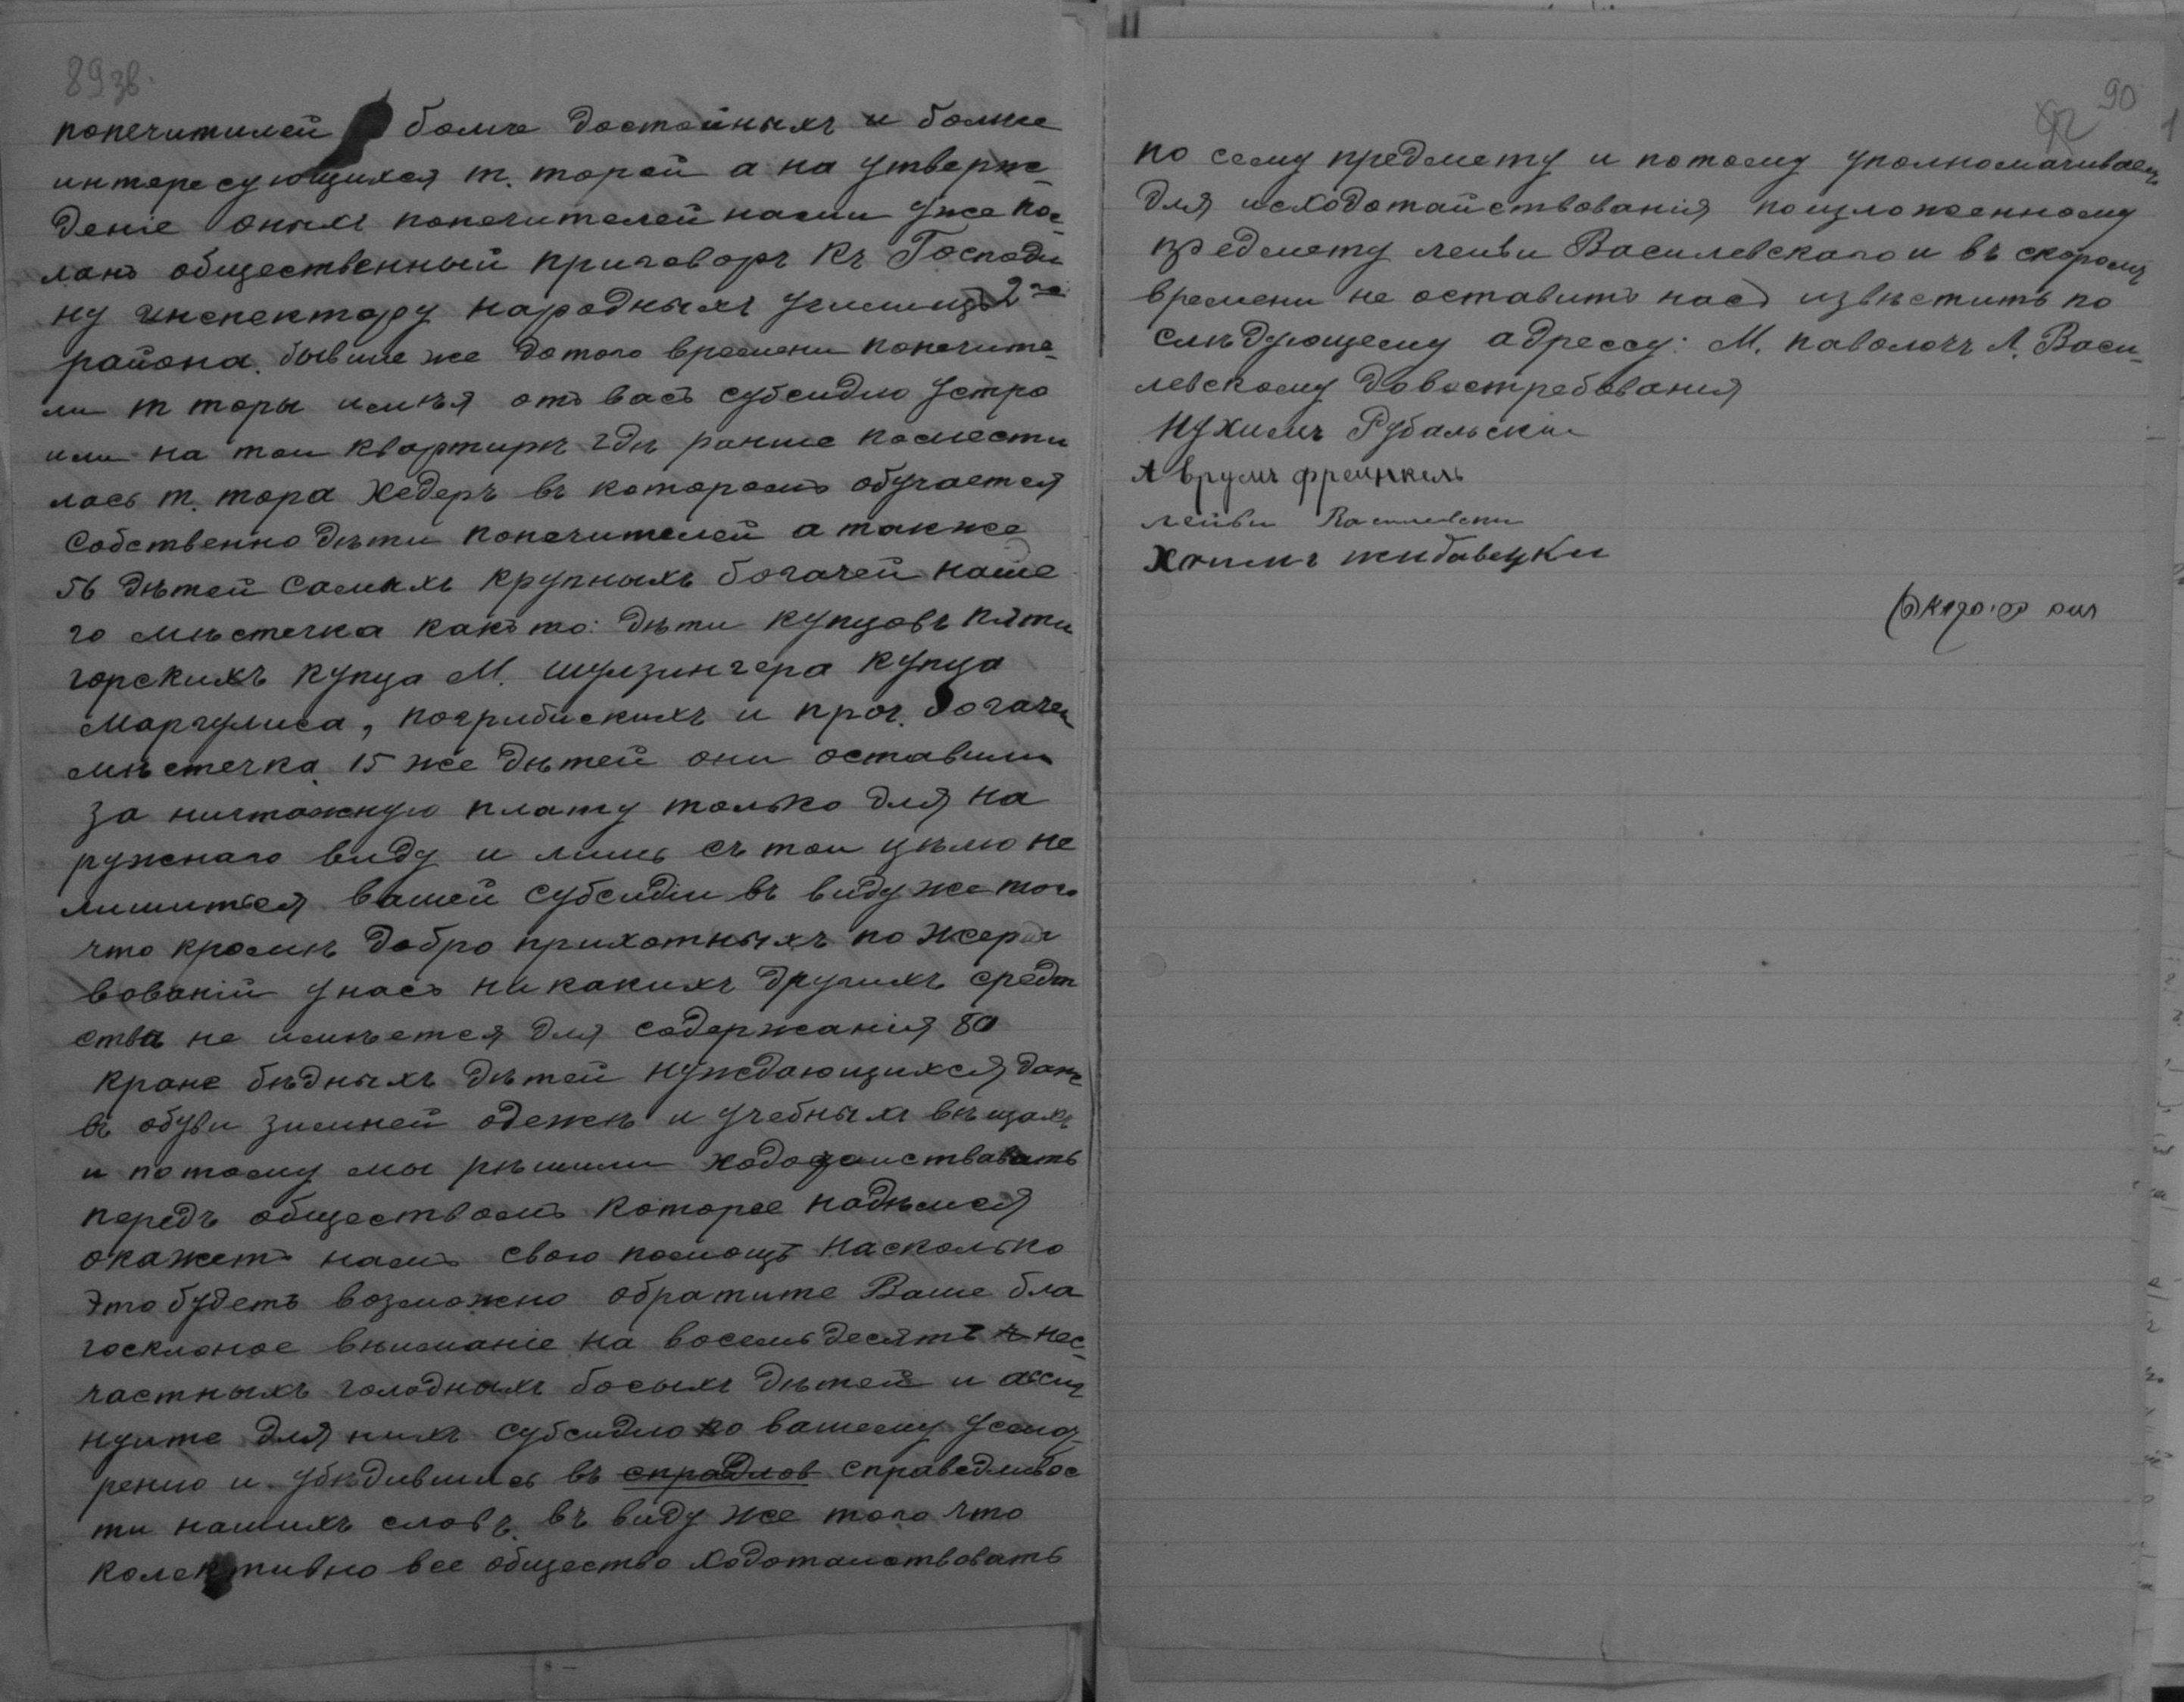 89 зв.
попечитилей болие достойныхъ и болие
интересующихся т. торой а на утверж-
деніе оныхъ попечителей нами уже пос-
ланъ общественный приговоръ къ Господи
ну инспектору народныхъ училищъ 2го
района. бывшие же дотого времени попечите-
ли т торы имѣя отъ васъ субсидию устро
или на тои квартирѣ гдѣ ранше помести
лась т. тора хедеръ въ которомъ обучается
собственно дѣти попечителей а также
56 дѣтей самыхъ крупныхъ богачей наше
го мѣстечка какъ то: дѣти купцовъ пяти
горскихъ купца М. шулзингера купца
маргулиса, погрибискихъ и проч. богачей
мѣстечка. 15 же дѣтей они оставили
за ничтожную плату только для на
ружнаго виду и лишь съ тои цѣлю не
лишится вашей субсидіи въ виду же того
что кромѣ добро прихотныхъ пожерт
вованій у насъ никакихъ другихъ средт
ства не имѣется для содержанія 80
кране бѣдныхъ дѣтей нуждающихся даже
въ обуви зимней одежѣ и учебныхъ вѣщахъ
и потому мы рѣшили хододаиствавать
передъ обществомъ которое надѣемся
окажетъ намъ свою помощъ насколько
это будетъ возможно обратите Ваше бла
госклоное вниманіе на восемьдесятъ нес-
частныхъ голодныхъ босыхъ дѣтей и ассиг
нуите для нихъ субсидию по вашему усмот
рению и. убѣдившись въ справдлов справедливос
ти нашихъ словъ. въ виду же того что
колективно все общество ходотаиствовать
90
по сему предмету и потому уполномачиваемъ
для исходотайствования поизложенному
предмету леиви Василевскаго и въ скоромъ
времени не оставить насъ извѣстить по
слѣдующему адрессу: М. паволочъ Л. Васи-
левскому довостребования
Нухимъ Рубальскій
Аврумъ френкель
леиви Василевски
Хаимъ жидавецки